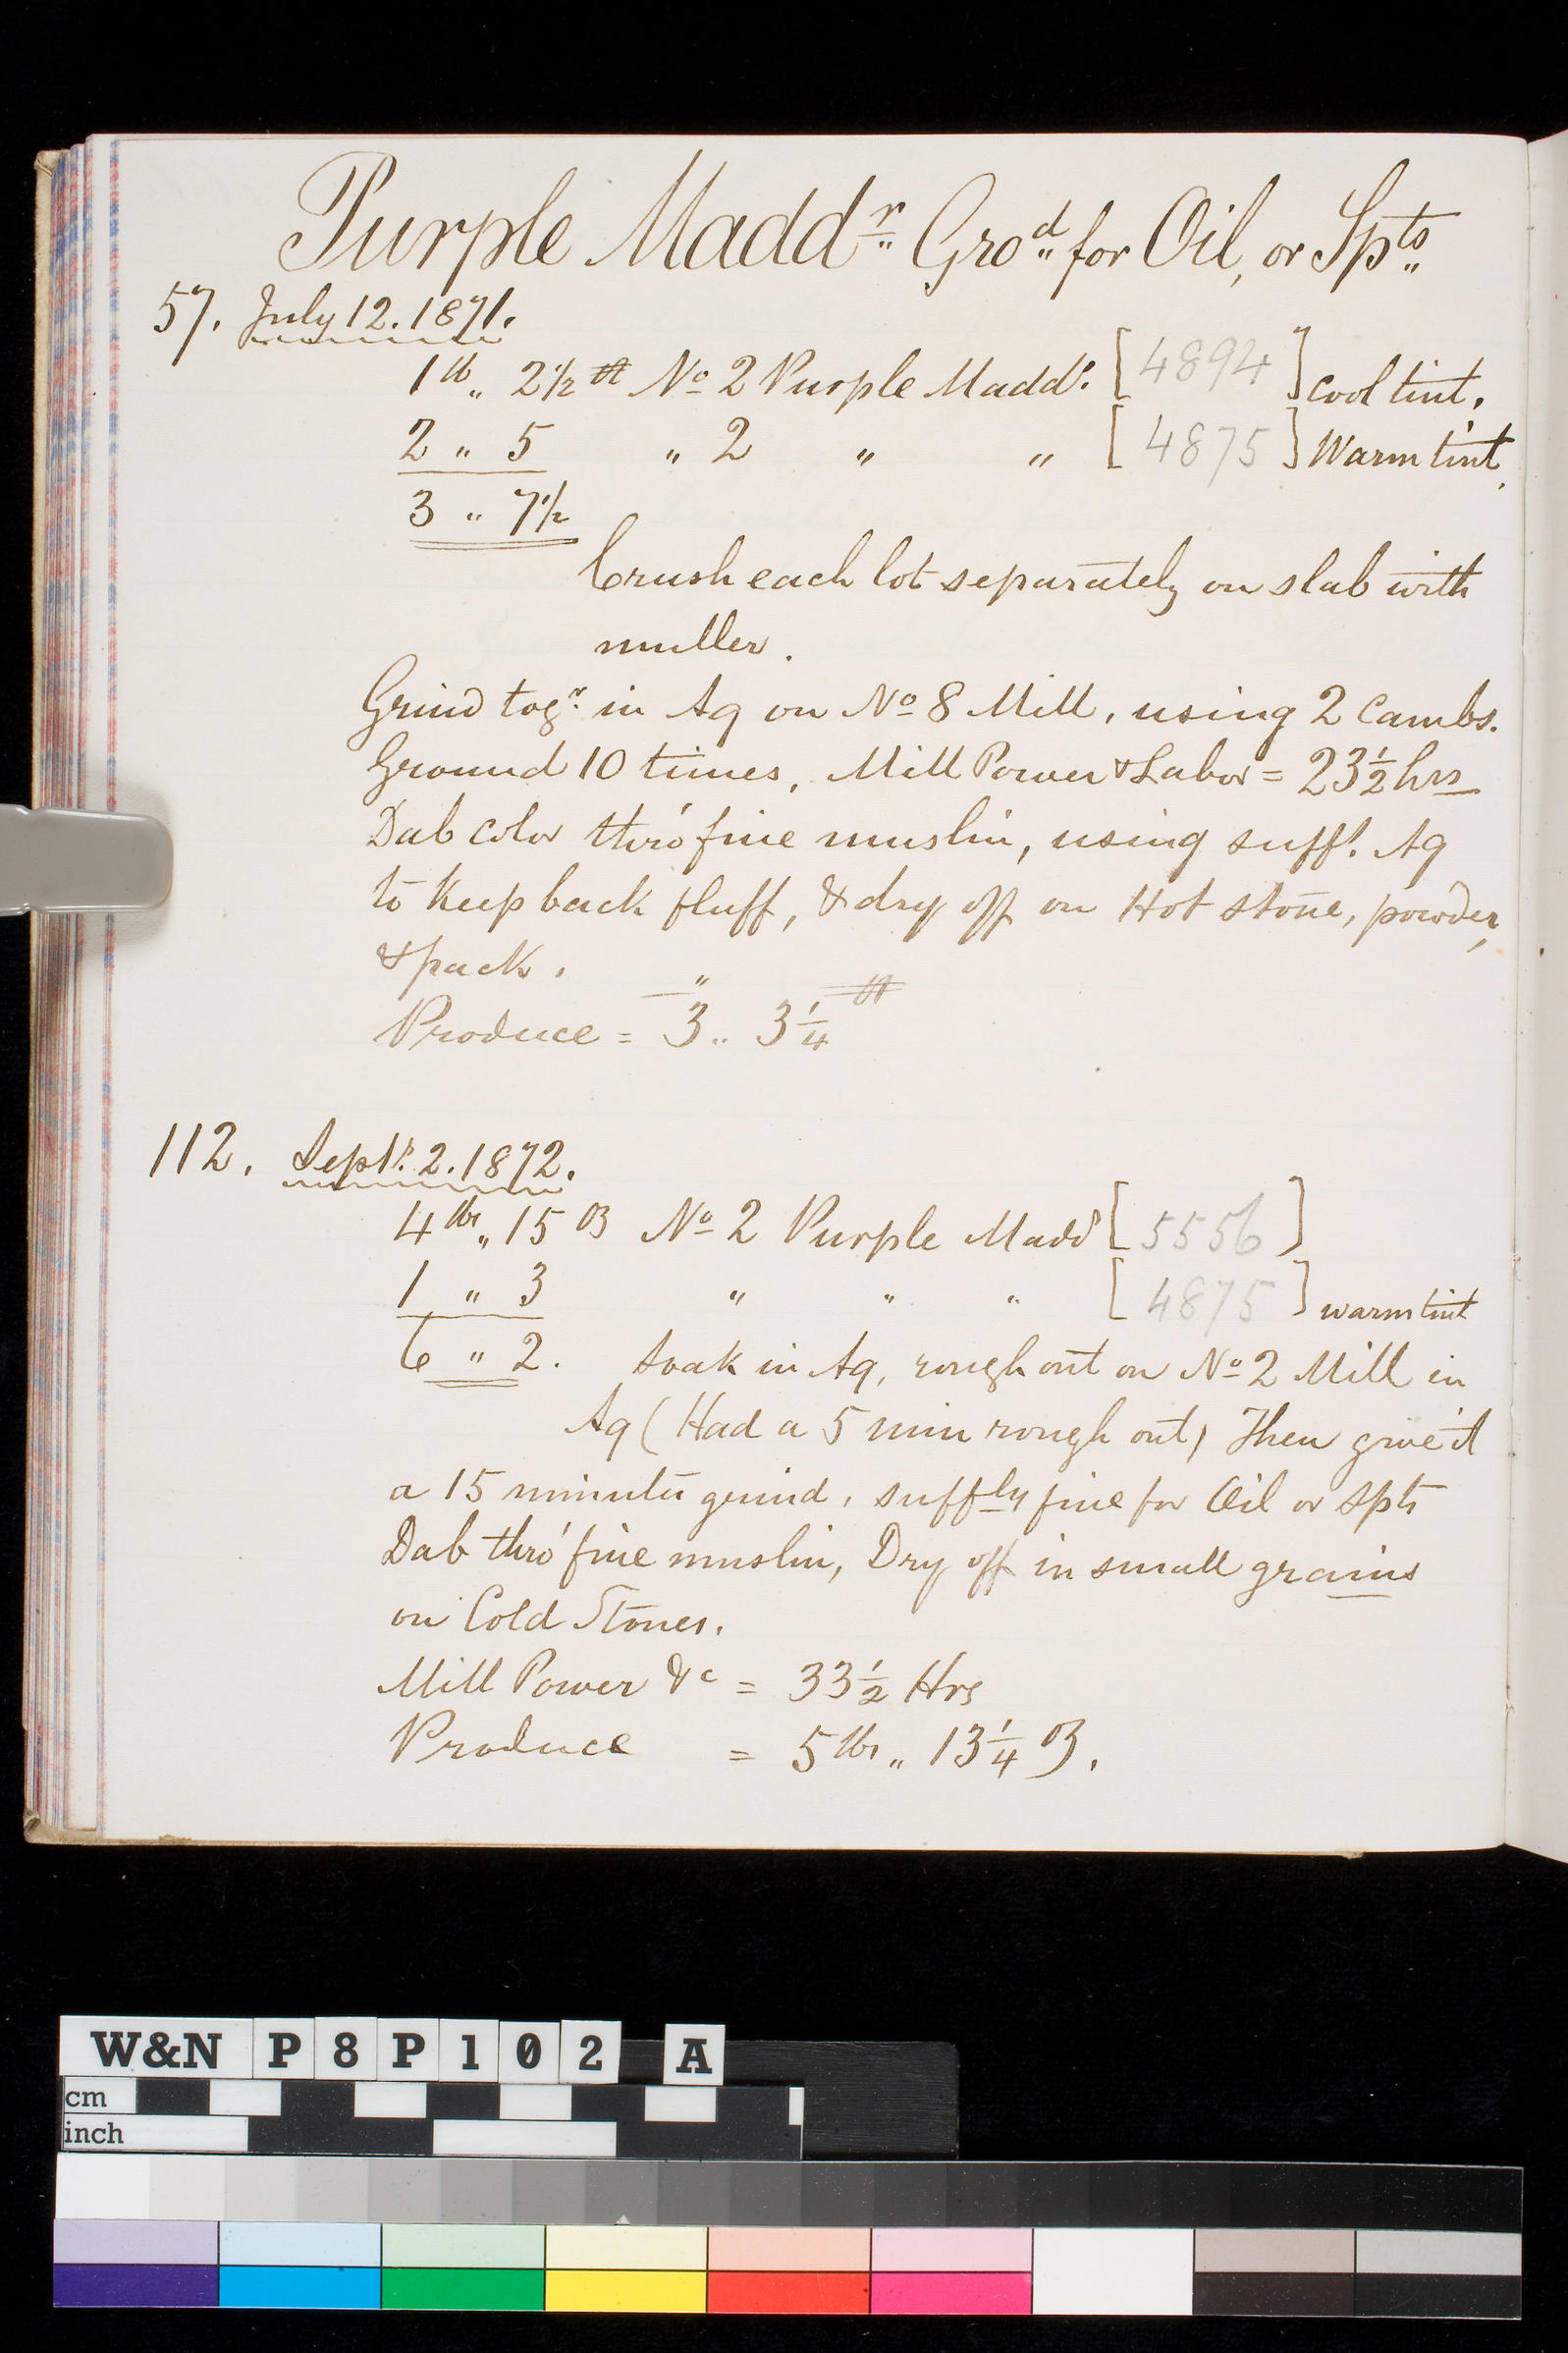 Purple Maddr Grod for Oil, or Spts
57. July 12. 1871.
1 lb „ 2½ No 2 Purple Maddr. [4894] Cool tint.
2 „ 5 „ 2 „ „ [4875] Warm tint.
3 „ 7½
Crush each lot separately on slab with
muller.
Grind togr. in Aq on No 8 Mill, using 2 Cambs.
Ground 10 times, Mill Power & Labor = 23½ hrs
Dab color thro' fine muslin, using sufft. Aq
to keep back fluff, & dry off on Hot stone, powder,
& pack.
Produce = 3 „ 3¼
112. Septr. 2. 1872.
4 lbs „ 15 oz No 2 Purple Madd [5556]
1 „ 3 „ „ „ [4875] warm tint
6 „ 2. Soak in Aq, rough out on No 2 Mill in
Aq (Had a 5 min rough out) Then give it
a 15 minute grind, suffly fine for Oil or Spts
Dab thro' fine muslin, Dry off in small grains
on Cold Stones.
Mill Power &c = 33½ Hrs
Produce = 5 lbs „ 13¼ oz.
W&N P8P102 A
cm
inch